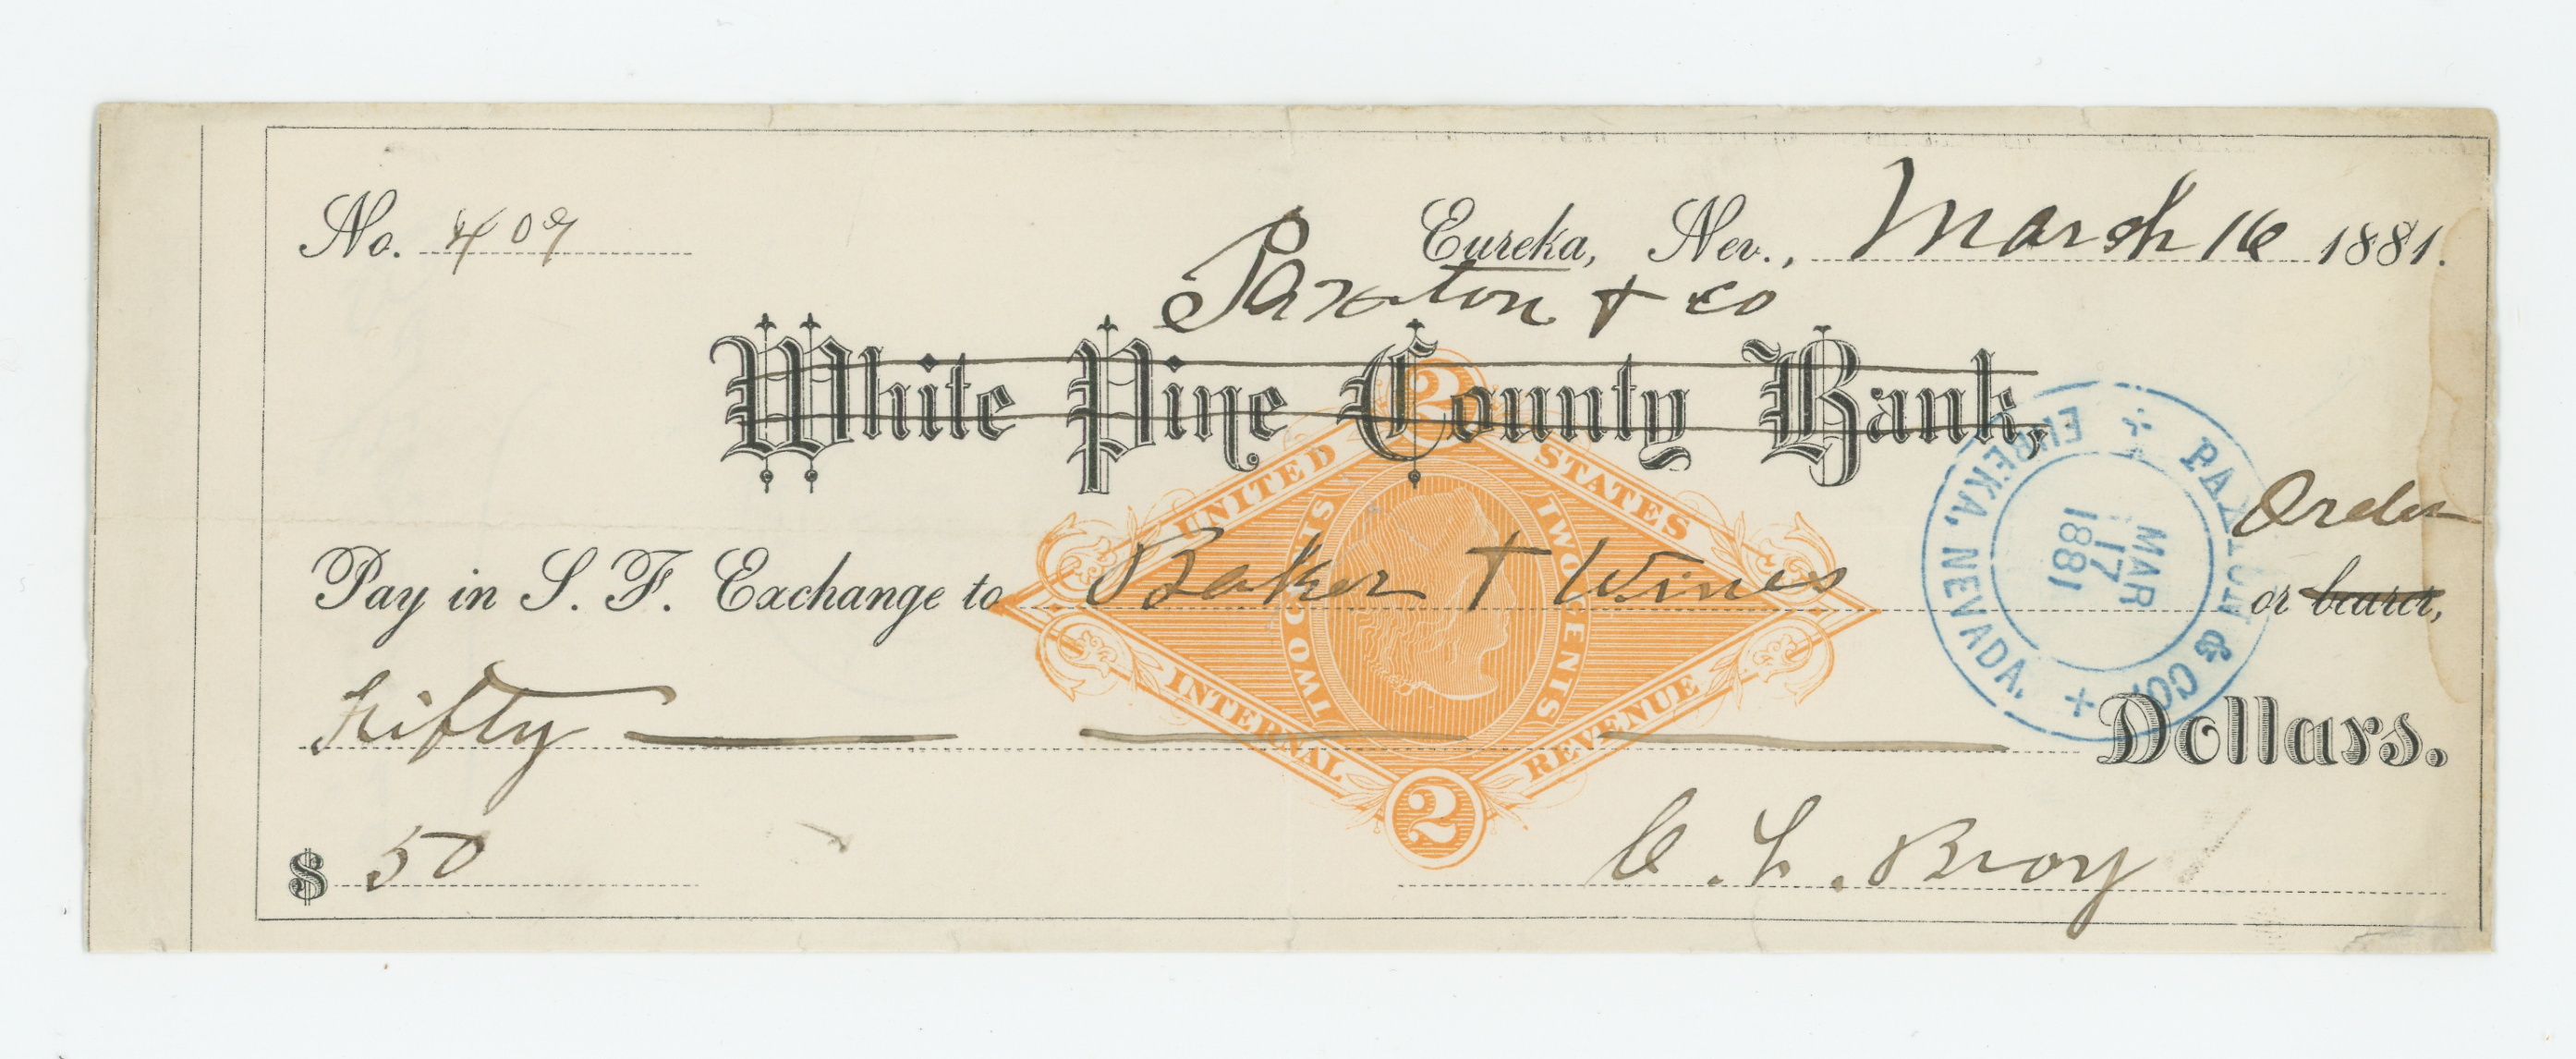 No. 409
Eureka, Nev., March 16 1881.
Paxton & Co
White Pine County Bank,
2
UNITED STATES
TWO CENTS TWO CENTS
INTERNAL REVENUE
2
PAXTON & CO.
EUREKA, NEVADA.
MAR
17
1881
Order
Pay in S. F. Exchange to Baker & Wines or bearer,
Fifty Dollars.
$ 50
C. L. Broy